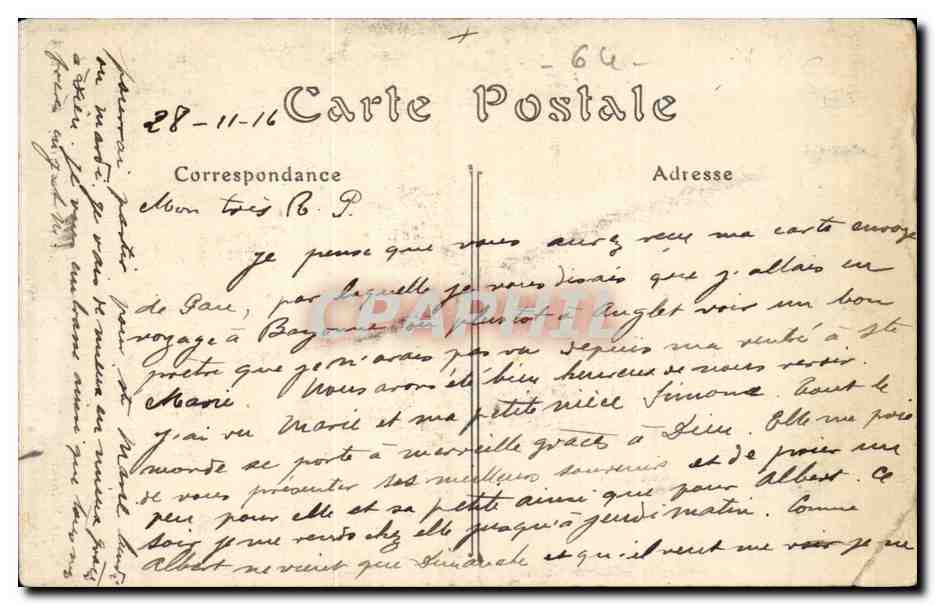 - 64 -
Carte Postale
28-11-16
Correspondance
Adresse
Mon très R. P.
Je pense que vous aurez reçu ma carte envoyé
de Pau, par laquelle je vous disais que j'allais en
voyage à Bayonne ou plustot à Anglet voir un bon
prêtre que je n'avais pas vu depuis ma rentré à Ste
Marie. Nous avons été bien heureux de nous revoir.
J'ai vu Marie et ma petite nièce Simone. Tout le
monde se porte à merveille grâces à Dieu. Elle me prie
de vous présenter ses meilleurs souvenirs et de prier un
peu pour elle et sa petite ainsi que pour Albert. Ce
soir je me rends chez elle jusqu'à jeudi matin. Comme
Albert ne vient que Dimanche et qu'il veut me voir je ne
pourrai partir pour Ste Marie lundi
ou mardi. Je vais de mieux en mieux grâces
à Dieu. Je vous embrasse ainsi que tous
CPARPHIL